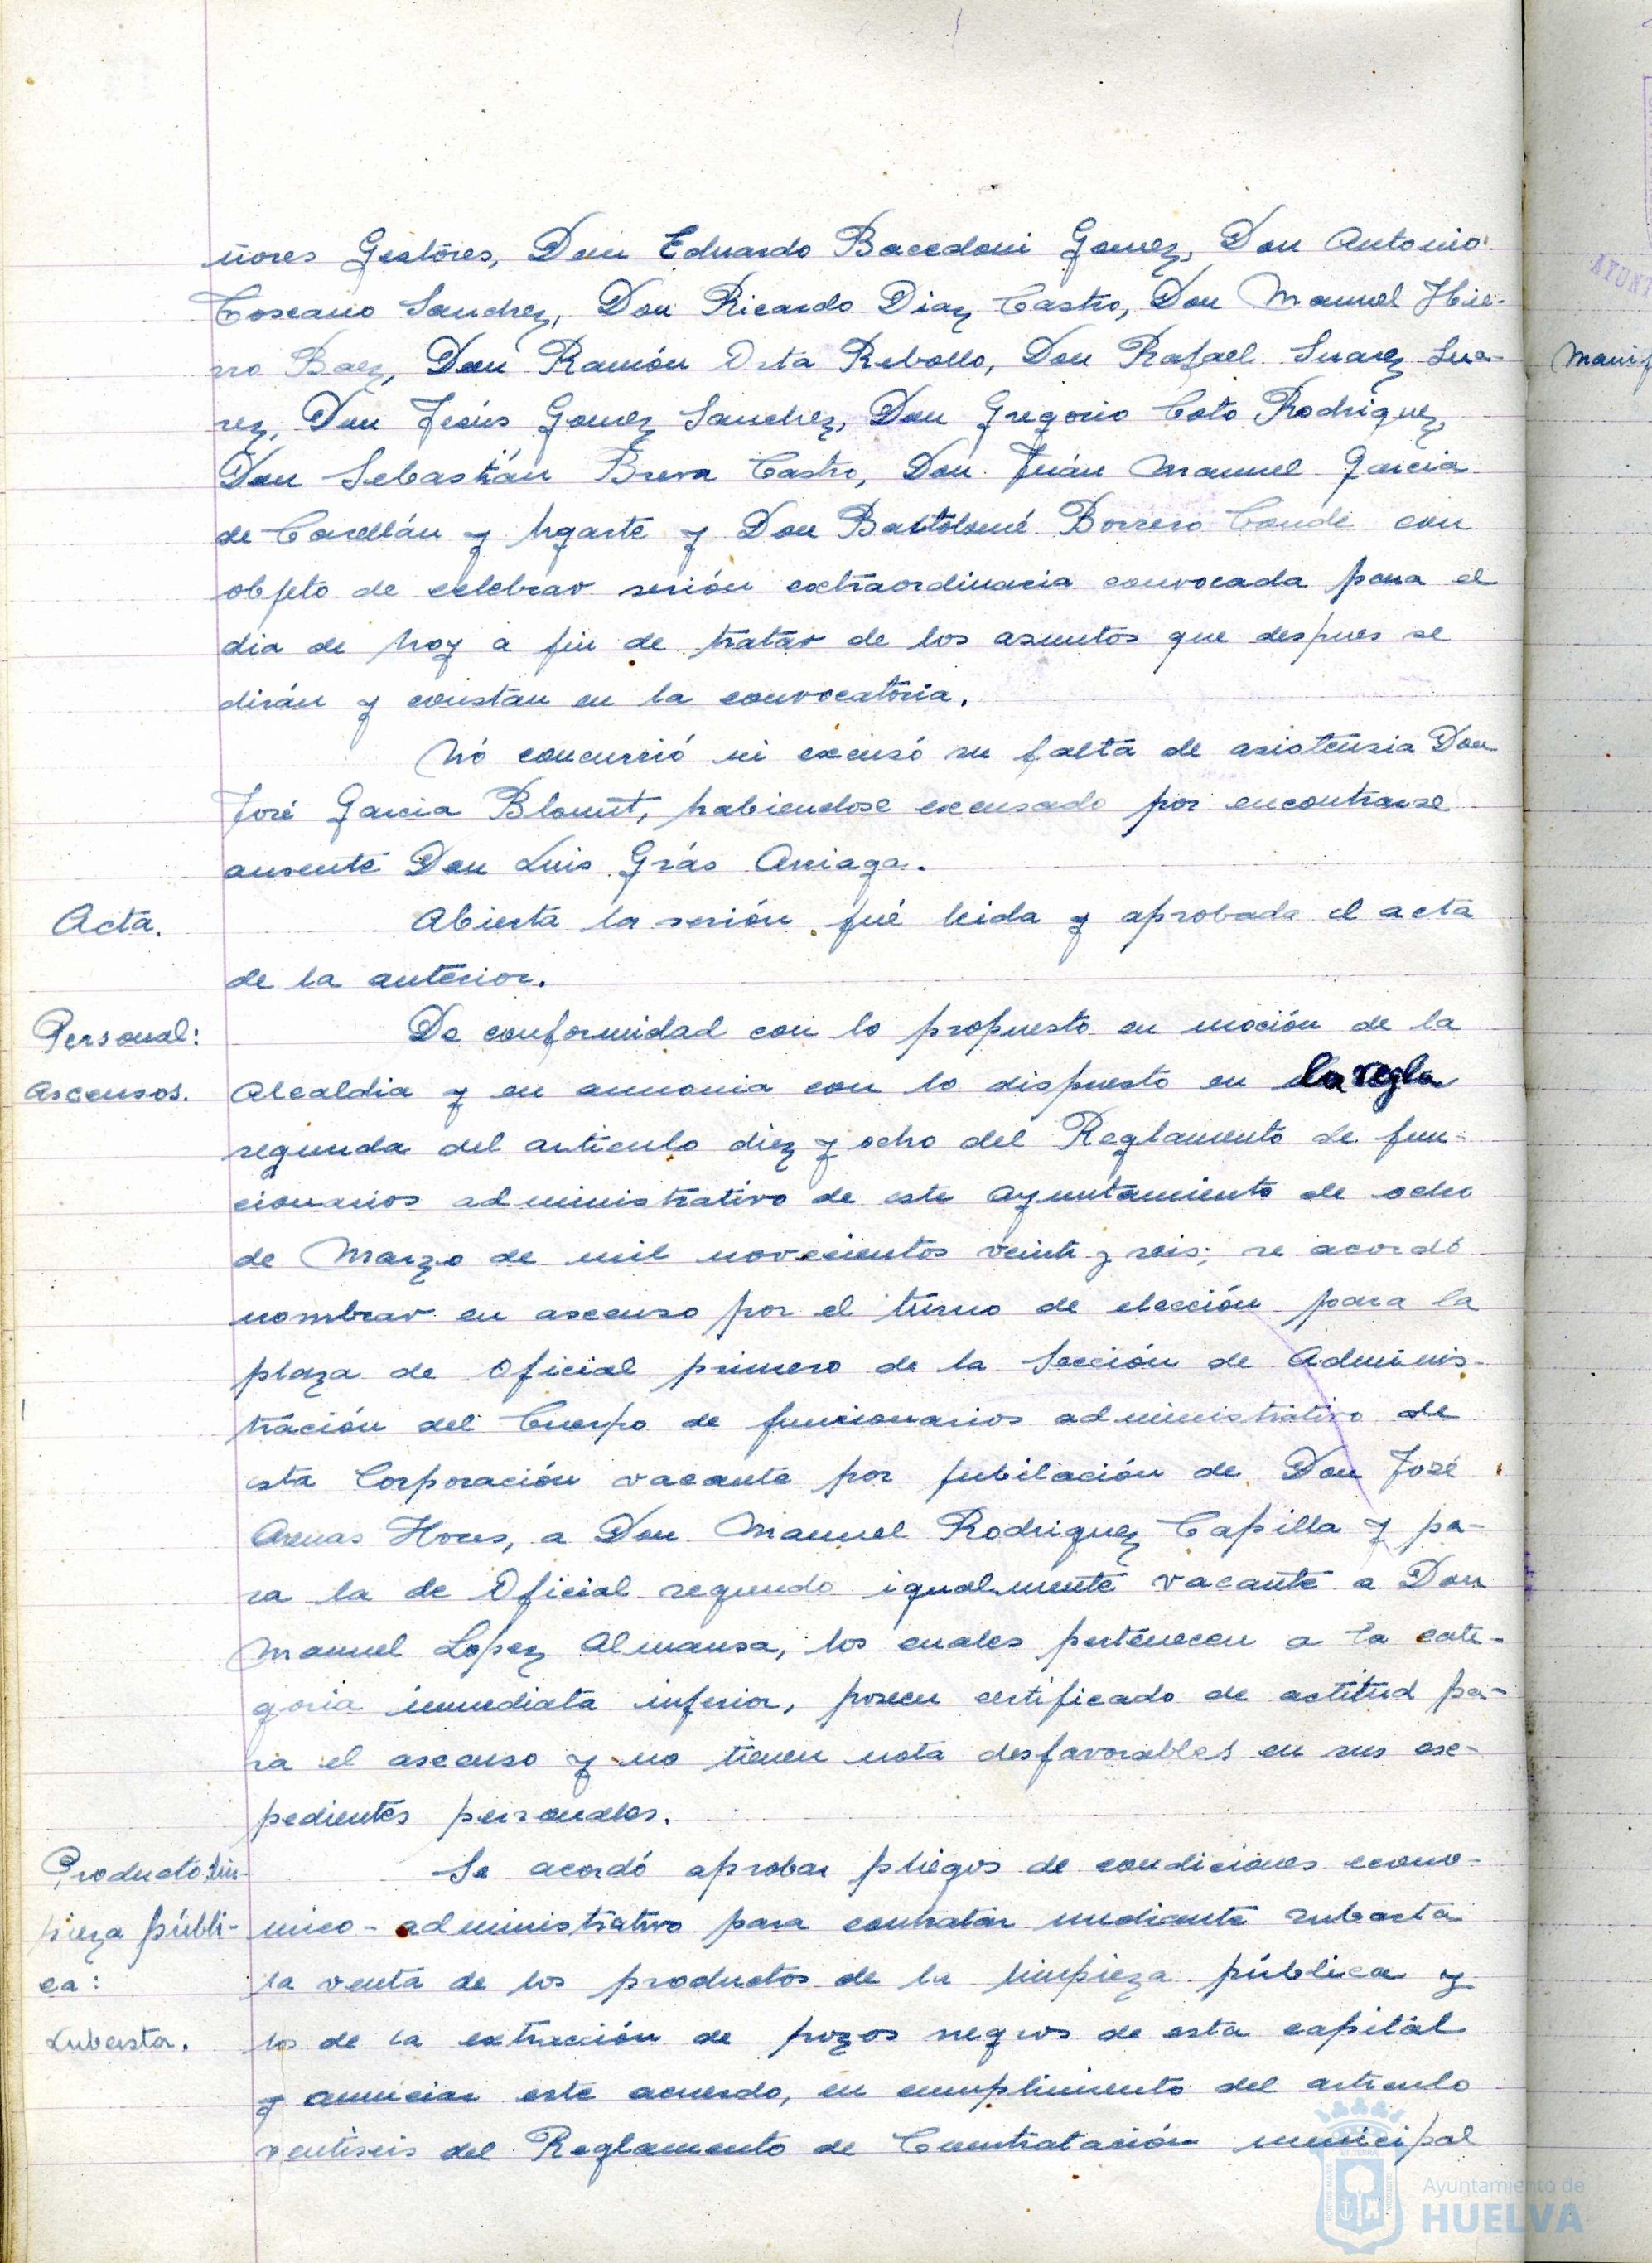 ñores Gestores, Don Eduardo Bacedoni Gomez, Don Antonio
Toscano Sanchez, Don Ricardo Diaz Castro, Don Manuel Hie-
rro Baez, Don Ramón Orta Rebollo, Don Rafael Suarez Sua-
rez, Don Jesús Gomez Sanchez, Don Gregorio Coto Rodriguez,
Don Sebastián Breva Castro, Don Juán Manuel Garcia
de Casellán y Ugarte y Don Bartolomé Borrero Conde con
objeto de celebrar sesión extraordinaria convocada para el
dia de hoy a fin de tratar de los asuntos que despues se
dirán y constan en la convocatoria.
Nó concurrió ni excusó su falta de asistencia Don
José Garcia Blount, habiendose excusado por encontrarse
ausente Don Luis Grás Arriaga.
Acta.
Abierta la sesión fué leida y aprobada el acta
de la anterior.
Personal:
Ascensos.
De conformidad con lo propuesto en moción de la
Alcaldia y en armonia con lo dispuesto en la regla
segunda del articulo diez y ocho del Reglamento de fun-
cionarios administrativo de este Ayuntamiento de ocho
de Marzo de mil novecientos veinte y seis; se acordó
nombrar en ascenso por el turno de elección para la
plaza de Oficial primero de la Sección de Adminis-
tración del Cuerpo de funcionarios administrativo de
esta Corporación vacante por jubilación de Don José
Arenas Flores, a Don Manuel Rodriguez Capilla y pa-
ra la de Oficial segundo igualmente vacante a Don
Manuel Lopez Almansa, los cuales pertenecen a la cate-
goria inmediata inferior, poseen certificado de actitud pa-
ra el ascenso y no tienen nota desfavorables en sus ex-
pedientes personales.
Producto lim-
pieza públi-
ca:
Subasta.
Se acordó aprobar pliegos de condiciones econo-
mico-administrativo para contratar mediante subasta
la venta de los productos de la limpieza pública y
los de la extracción de pozos negros de esta capital
y anunciar este acuerdo, en cumplimiento del articulo
ventiseis del Reglamento de Contratación municipal
Manif
AYUNT
Ayuntamiento de
HUELVA